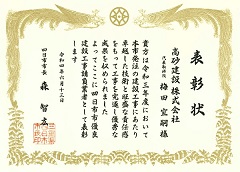 表彰状
高砂建設 株式会社
代表取締役 梅田 宜嗣 様
貴方は令和三年度において
本市発注の建設工事にあたり
卓越した技術と旺盛な責任感
をもって工事を完遂し優秀な
成果を収められました
よってここに四日市市優良
建設工事請負業者として表彰
します
令和四年六月十三日
四日市市長 森 智広